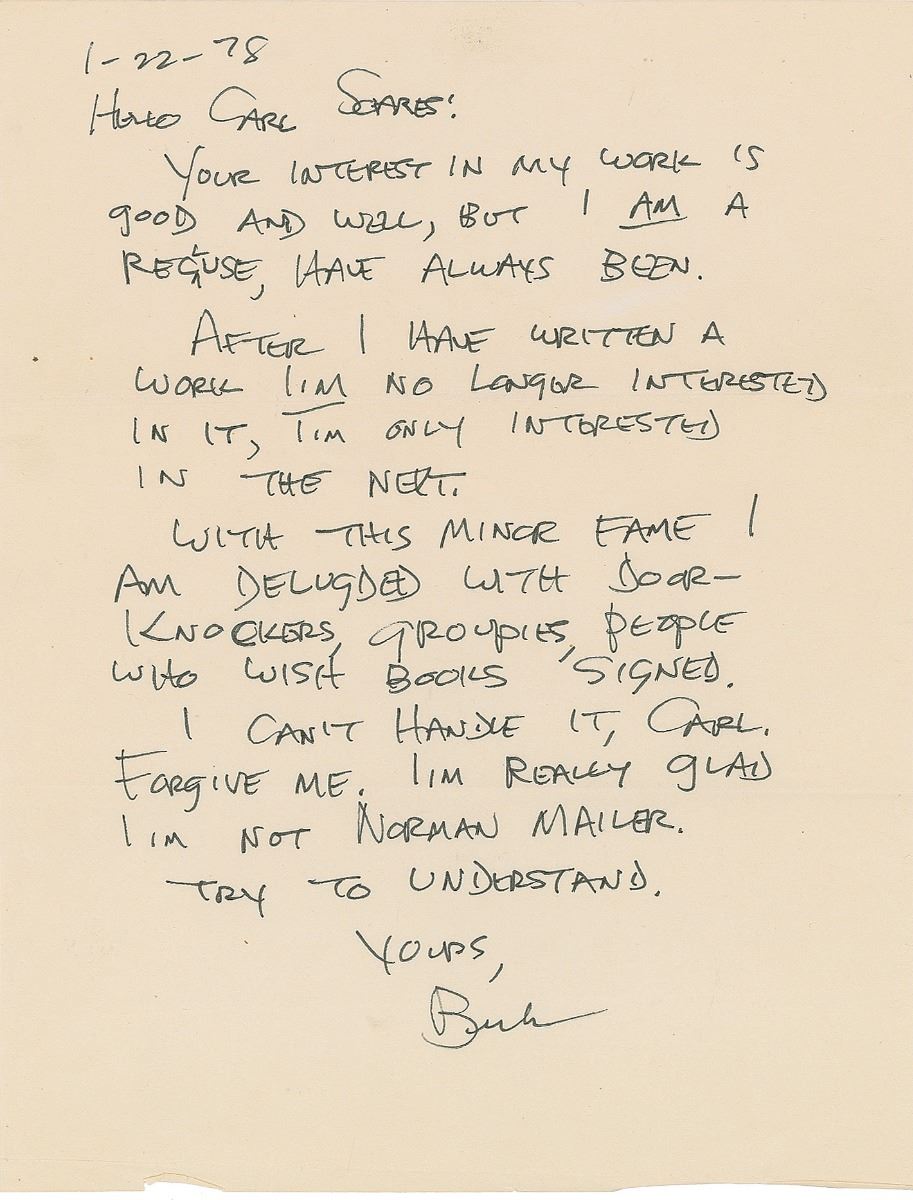 1-22-78
HELLO CARL SOARES:
YOUR INTEREST IN MY WORK IS
GOOD AND WELL, BUT I AM A
RECLUSE, HAVE ALWAYS BEEN.
AFTER I HAVE WRITTEN A
WORK I'M NO LONGER INTERESTED
IN IT, I'M ONLY INTERESTED
IN THE NEXT.
WITH THIS MINOR FAME I
AM DELUGDED WITH DOOR-
KNOCKERS, GROUPIES, PEOPLE
WHO WISH BOOKS SIGNED.
I CAN'T HANDLE IT, CARL.
FORGIVE ME. I'M REALLY GLAD
I'M NOT NORMAN MAILER.
TRY TO UNDERSTAND.
YOURS,
Buk